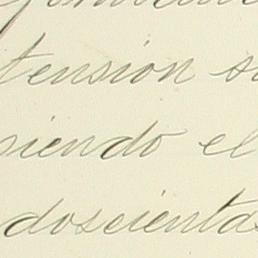 tension su
siendo el
doscientas